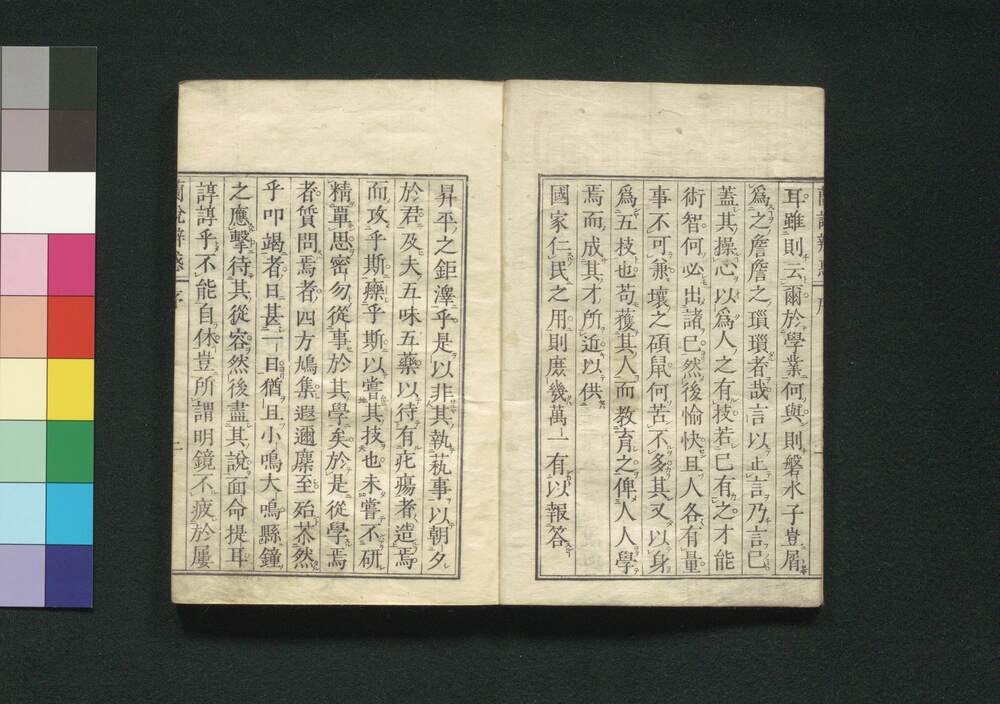 耳雖則云爾於學業何與則磐水子豈屑
爲之詹詹之瑣瑣者哉言以止言乃言已
蓋其操心以爲人之有技若已有之才能
術智何必出諸已然後愉快且人各有量
事不可兼壤之碩鼠何苦不多其又以身
爲五技也苟獲其人而教育之俾人人學
焉而成其才所近以供
國家仁民之用則庶幾萬一有以報答
昇平之鉅澤乎是以非其執萟事以朝夕
於君及夫五味五藥以待有疕瘍者造焉
而攻乎斯藥乎斯以嘗其技也未嘗不研
精覃思密勿從事於其學矣於是從學焉
者質問焉者四方鳩集遐邇麇至殆苶然
乎叩竭者日甚一日猶且小鳴大鳴縣鐘
之應擊待其從容然後盡其說面命提耳
諄諄乎不能自休豈所謂明鏡不疲於屢
蘭說辨惑 序